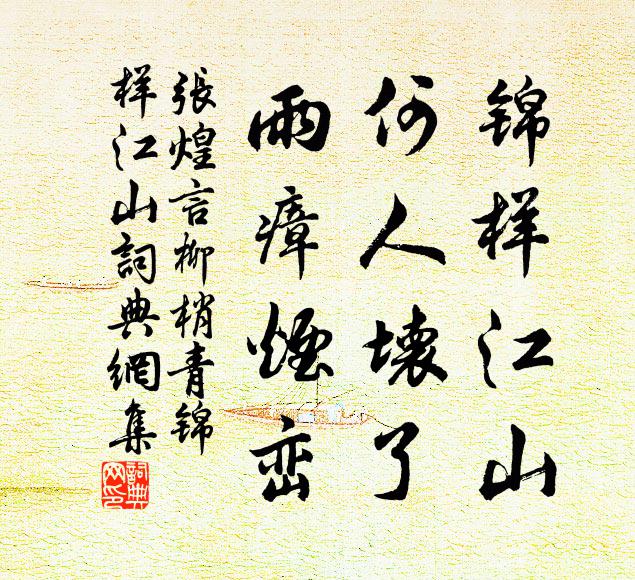 锦样江山
何人壞了
雨瘴煙峦
張煌言柳梢青錦
样江山詞典網集
詞典网印